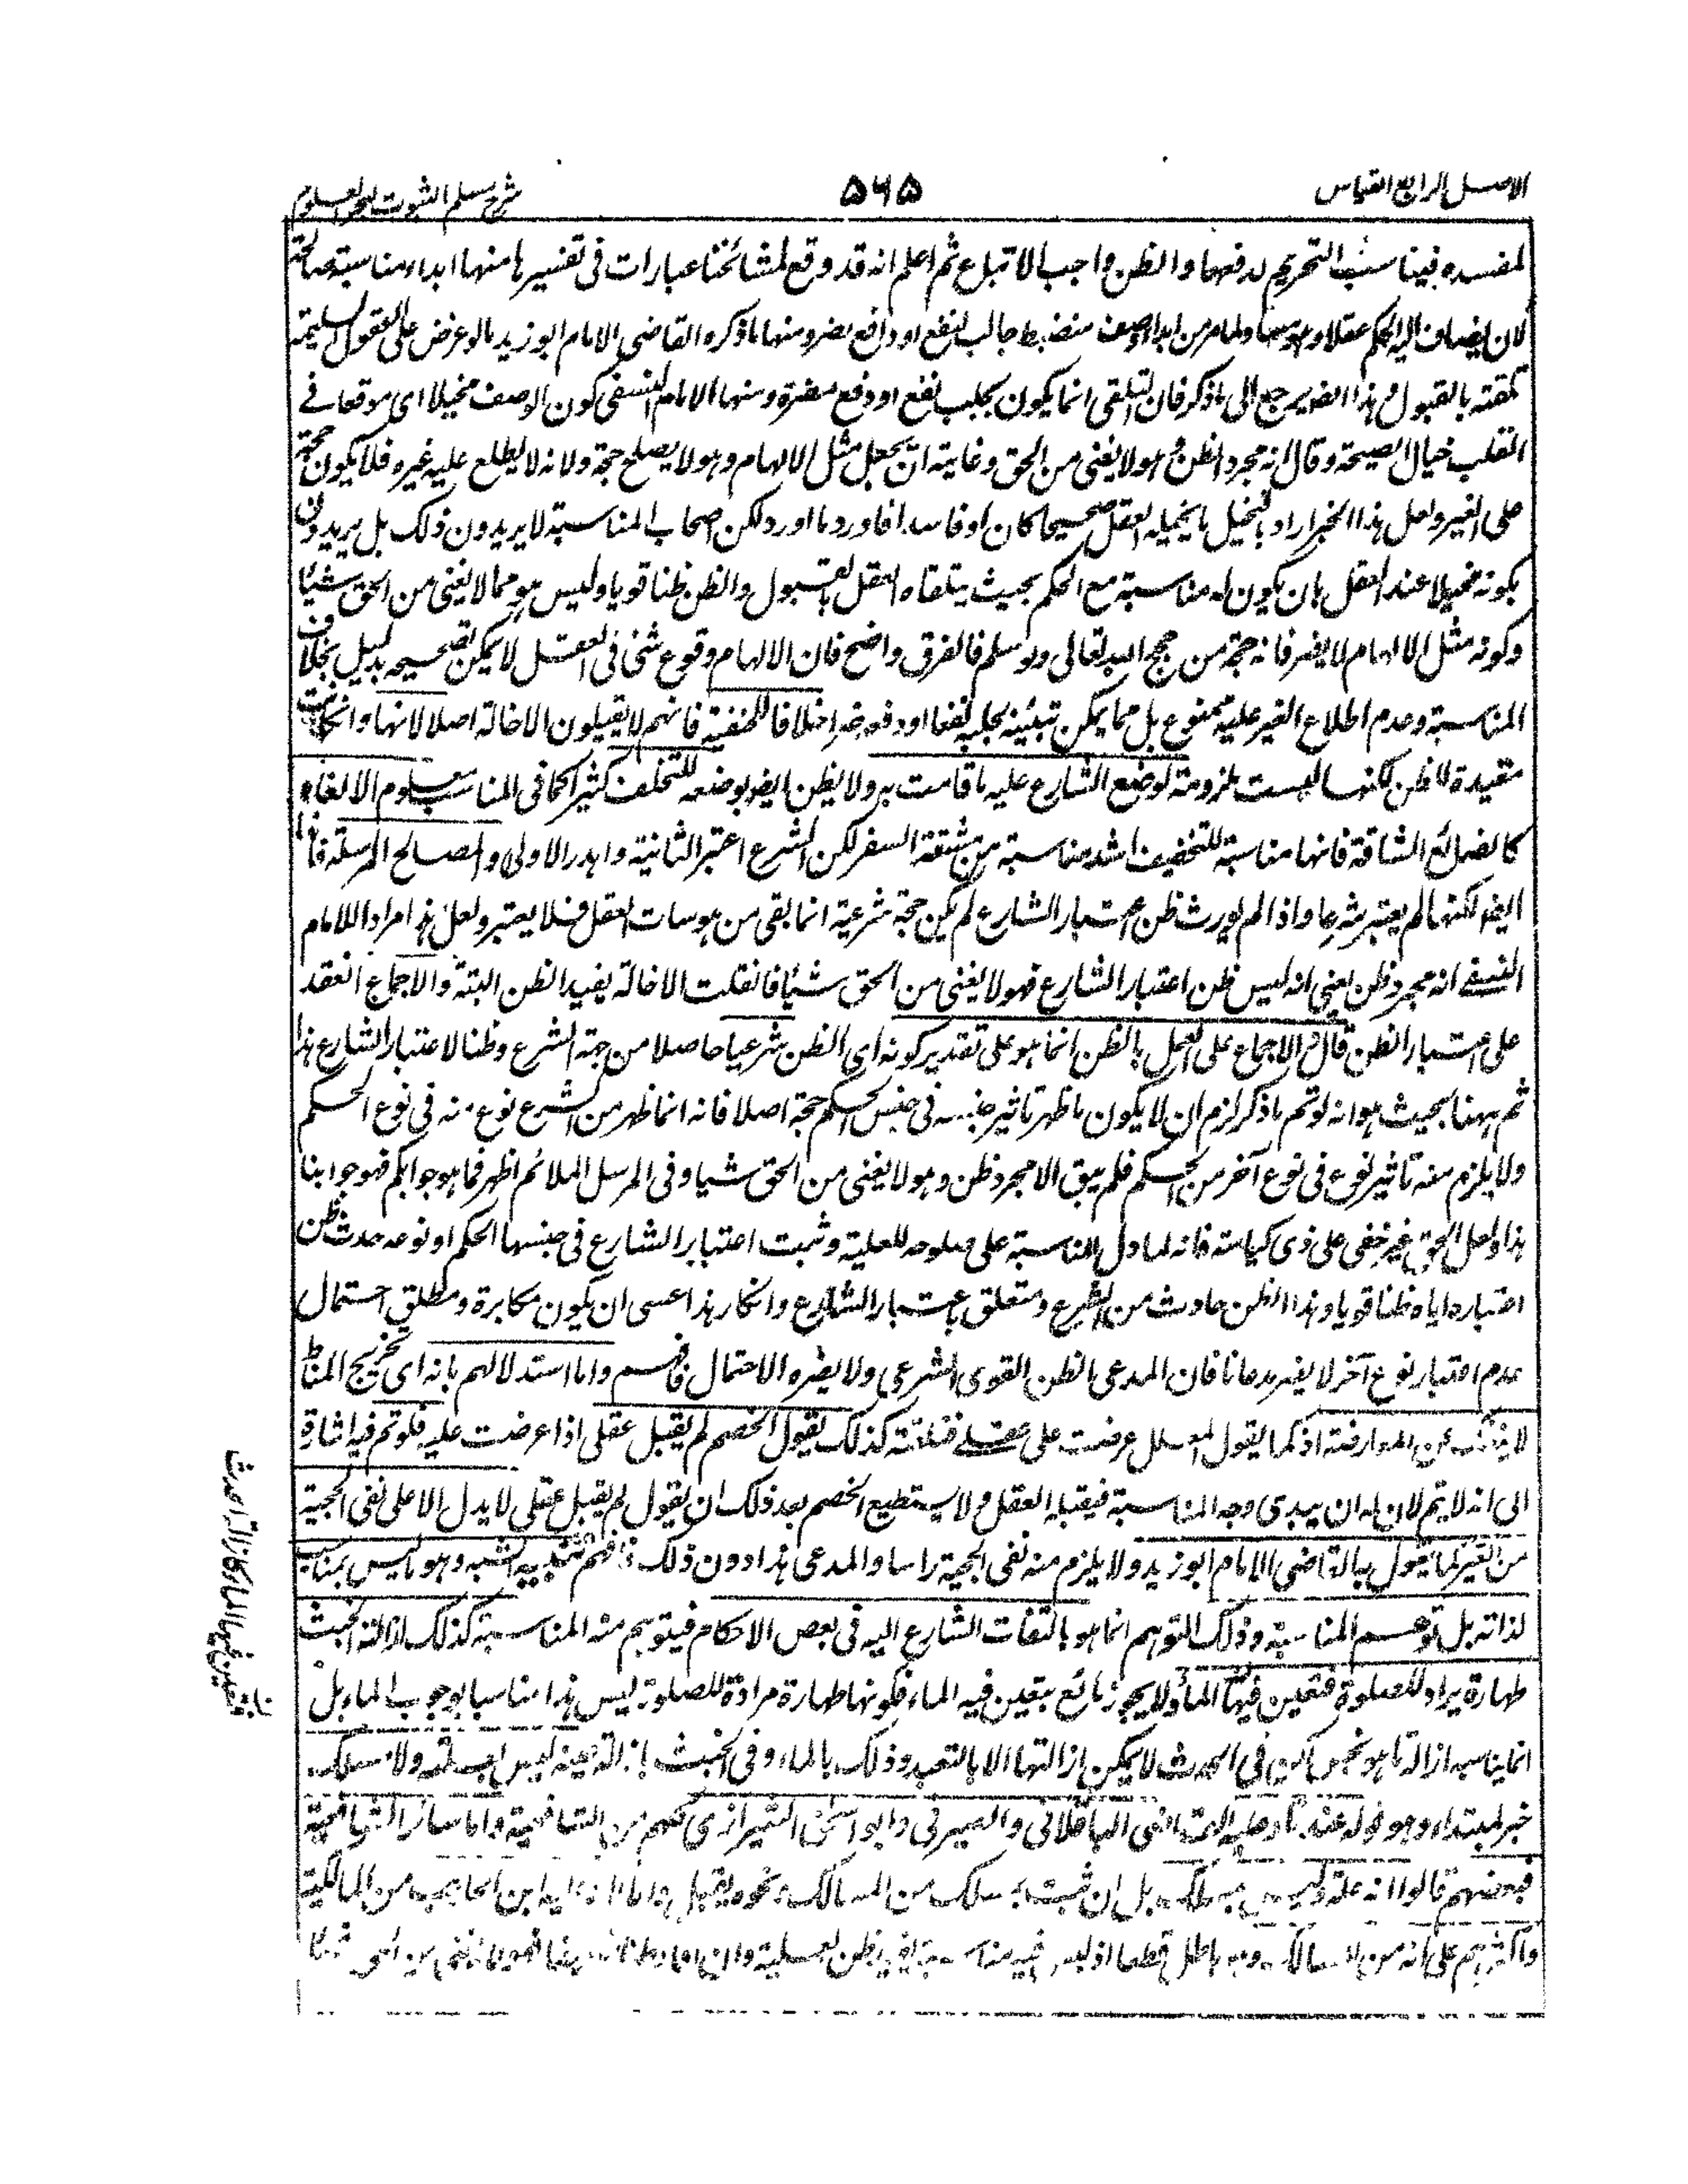 الاصل الرابع القياس
۵۶۵
شرح مسلم الثبوت لبحر العلوم
لمفسدة فيناسب التحريم لدفعها والظن واجب الاتباع ثم اعلم انه قد وقع لمشائخنا عبارات فى تفسيرها منها ابداء مناسبة صالحة
لان يضاف اليه الحكم عقلا وهو معنى ما مر من ابداء وصف منضبط جالب لنفع او دافع بضر ومنها ما ذكره القاضى الامام ابو زيد ما لو عرض على العقول السليمة
تلقته بالقبول وهذا ايضا يرجع الى ما ذكر فان التلقى انما يكون بجلب نفع او دفع مضرة ومنها الامام النسفى كون الوصف مخيلا اى موقعا فى
القلب خيال الصحة وقال انه مجرد الظن وهو لا يغنى من الحق وغايته ان يجعل مثل الالهام وهو لا يصلح حجة ولانه لا يطلع عليه غيره فلا يكون حجة
على الغير ولعل هذا الخبر اراد بالتخيل ما يخيله العقل صحيحا كان او فاسدا فاورد ما اورد لكن اصحاب المناسبة لا يريدون ذلك بل يريدون
بكونه مخيلا عند العقل بان يكون له مناسبة مع الحكم بحيث يتلقاه العقل بالقبول والظن ظنا قويا وليس هو مما لا يغنى من الحق شيئا
وكونه مثل الالهام لا يضر فانه حجة من حجج الله تعالى ولو سلم فالفرق واضح فان الالهام وقوع شئ فى العقل لا يمكن تصحيحه بدليل بخلاف
المناسبة وعدم اطلاع الغير عليه ممنوع بل مما يمكن تبيينه بجلبه نفعا او دفعه ضرا خلافا للحنفية فانهم لا يقبلون الاخالة اصلا لانها وان كانت
مفيدة للظن لكنها ليست ملزومة لوضع الشارع عليه ما قامت به ولا يظن ايضا بوضعه للتخلف كثيرا كما فى المناسب معلوم الالغاء
كالصنائع الشاقة فانها مناسبة للتخفيف اشد مناسبة من مشقة السفر لكن الشرع اعتبر الثانية واهدر الاولى والمصالح المرسلة فانها
ايضا لكنها لم يعتبر شرعا واذا لم يورث ظن اعتبار الشارع لم يكن حجة شرعية انما بقى من هوسات العقل فلا يعتبر ولعل هذا مراد الامام
النسفى انه مجرد ظن يعنى انه ليس ظن اعتبار الشارع فهو لا يغنى من الحق شيئا فانقلت الاخالة يفيد الظن البتة والاجماع انعقد
على اعتبار الظن قال والاجماع على العمل بالظن انما هو على تقدير كونه اى الظن شرعيا حاصلا من جهة الشرع وظنا لاعتبار الشارع هذا
ثم ههنا بحيث هو انه لو تم ما ذكر لزم ان لا يكون ما ظهر تاثير جنسه فى جنس الحكم حجة اصلا فانه انما ظهر من الشرع نوع منه فى نوع الحكم
ولا يلزم منه تاثير نوع فى نوع آخر من الحكم فلم يبق الا مجرد ظن وهو لا يغنى من الحق شيا وفى المرسل الملائم اظهر فما هو جوابكم فهو جوابنا
هذا ولعل الحق غير خفى على ذى كياسة فانه لما دل المناسبة على صلوحه للعلية وثبت اعتبار الشارع فى جنسها الحكم او نوعه حدث ظن
اعتباره اياه ظنا قويا وهذا الظن حادث من الشرع ومتعلق باعتبار الشارع وانكار هذا عسى ان يكون مكابرة ومطلق احتمال
عدم اعتبار نوع آخر لا يضر مدعانا فان المدعى الظن القوى الشرعى ولا يضره الاحتمال فافهم واما استدلالهم بانه اى تخريج المناط
لا ينفك عن المعارضة اذ كما يقول المعلل عرضت على عقلى فتلقته كذلك يقول الخصم لم يقبل عقلى اذا عرضت عليه فلو تم فيه اشارة
الى انه لا يتم لان له ان يبدى وجه المناسبة فيقبله العقل ولا يستطيع الخصم بعد ذلك ان يقول لم يقبل عقلى لا يدل الا على نفى الحجية
من الغير كما يقول به القاضى الامام ابو زيد ولا يلزم منه نفى الحجية راسا والمدعى هذا دون ذلك فافهم تتنبيه الشبه وهو ما ليس بمناسب
لذاته بل توهم المناسبة وذلك التوهم انما هو بالتفات الشارع اليه فى بعض الاحكام فيتوهم منه المناسبة كذلك ازالة الخبث
طهارة يراد للصلوة فتعين فيها الماء ولا يجوز مائع بتعين فيه الماء فكونها طهارة مرادة للصلوة ليس هذا مناسبا بوجوب الماء بل
انما يناسبه ازالة ما هو نجس لكن فى الحدث لا يمكن ازالتها الا بالتعبد وذلك بالماء وفى الخبث بازالة عينه ليس بعلة ولا مسلك
خبر لمبتداء وهو قوله عندنا وعليه القاضى الباقلانى والصيرفى وابو اسحق الشيرازى كلهم من الشافعية واما سائر الشافعية
فبعضهم قالوا انه علة وليس مسلكه بل ان ثبت بمسلك من المسالك ونحوه يقبل ابن الحاجب من المالكية
واكثرهم على انه من المسالك وهو باطل قطعا اذ ليس فيه ظن العلية وان